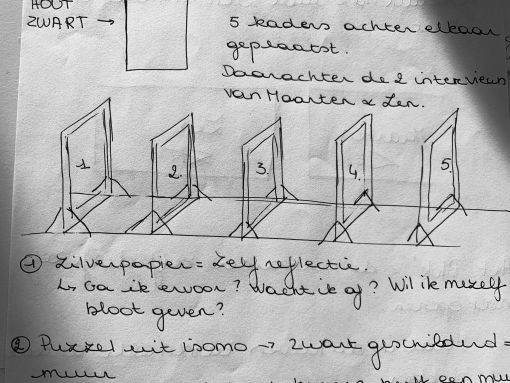 HOUT
ZWART →
5 kaders achter elkaar
geplaatst.
Daarachter de 2 interviews
van Maarten & Len.
1 2. 3. 4. 5.
① Zilverpapier = Zelfreflectie.
↳ Ga ik ervoor? Wacht ik af? Wil ik mezelf
bloot geven?
② Puzzel uit isomo → zwart geschilderd =
muur
een muu